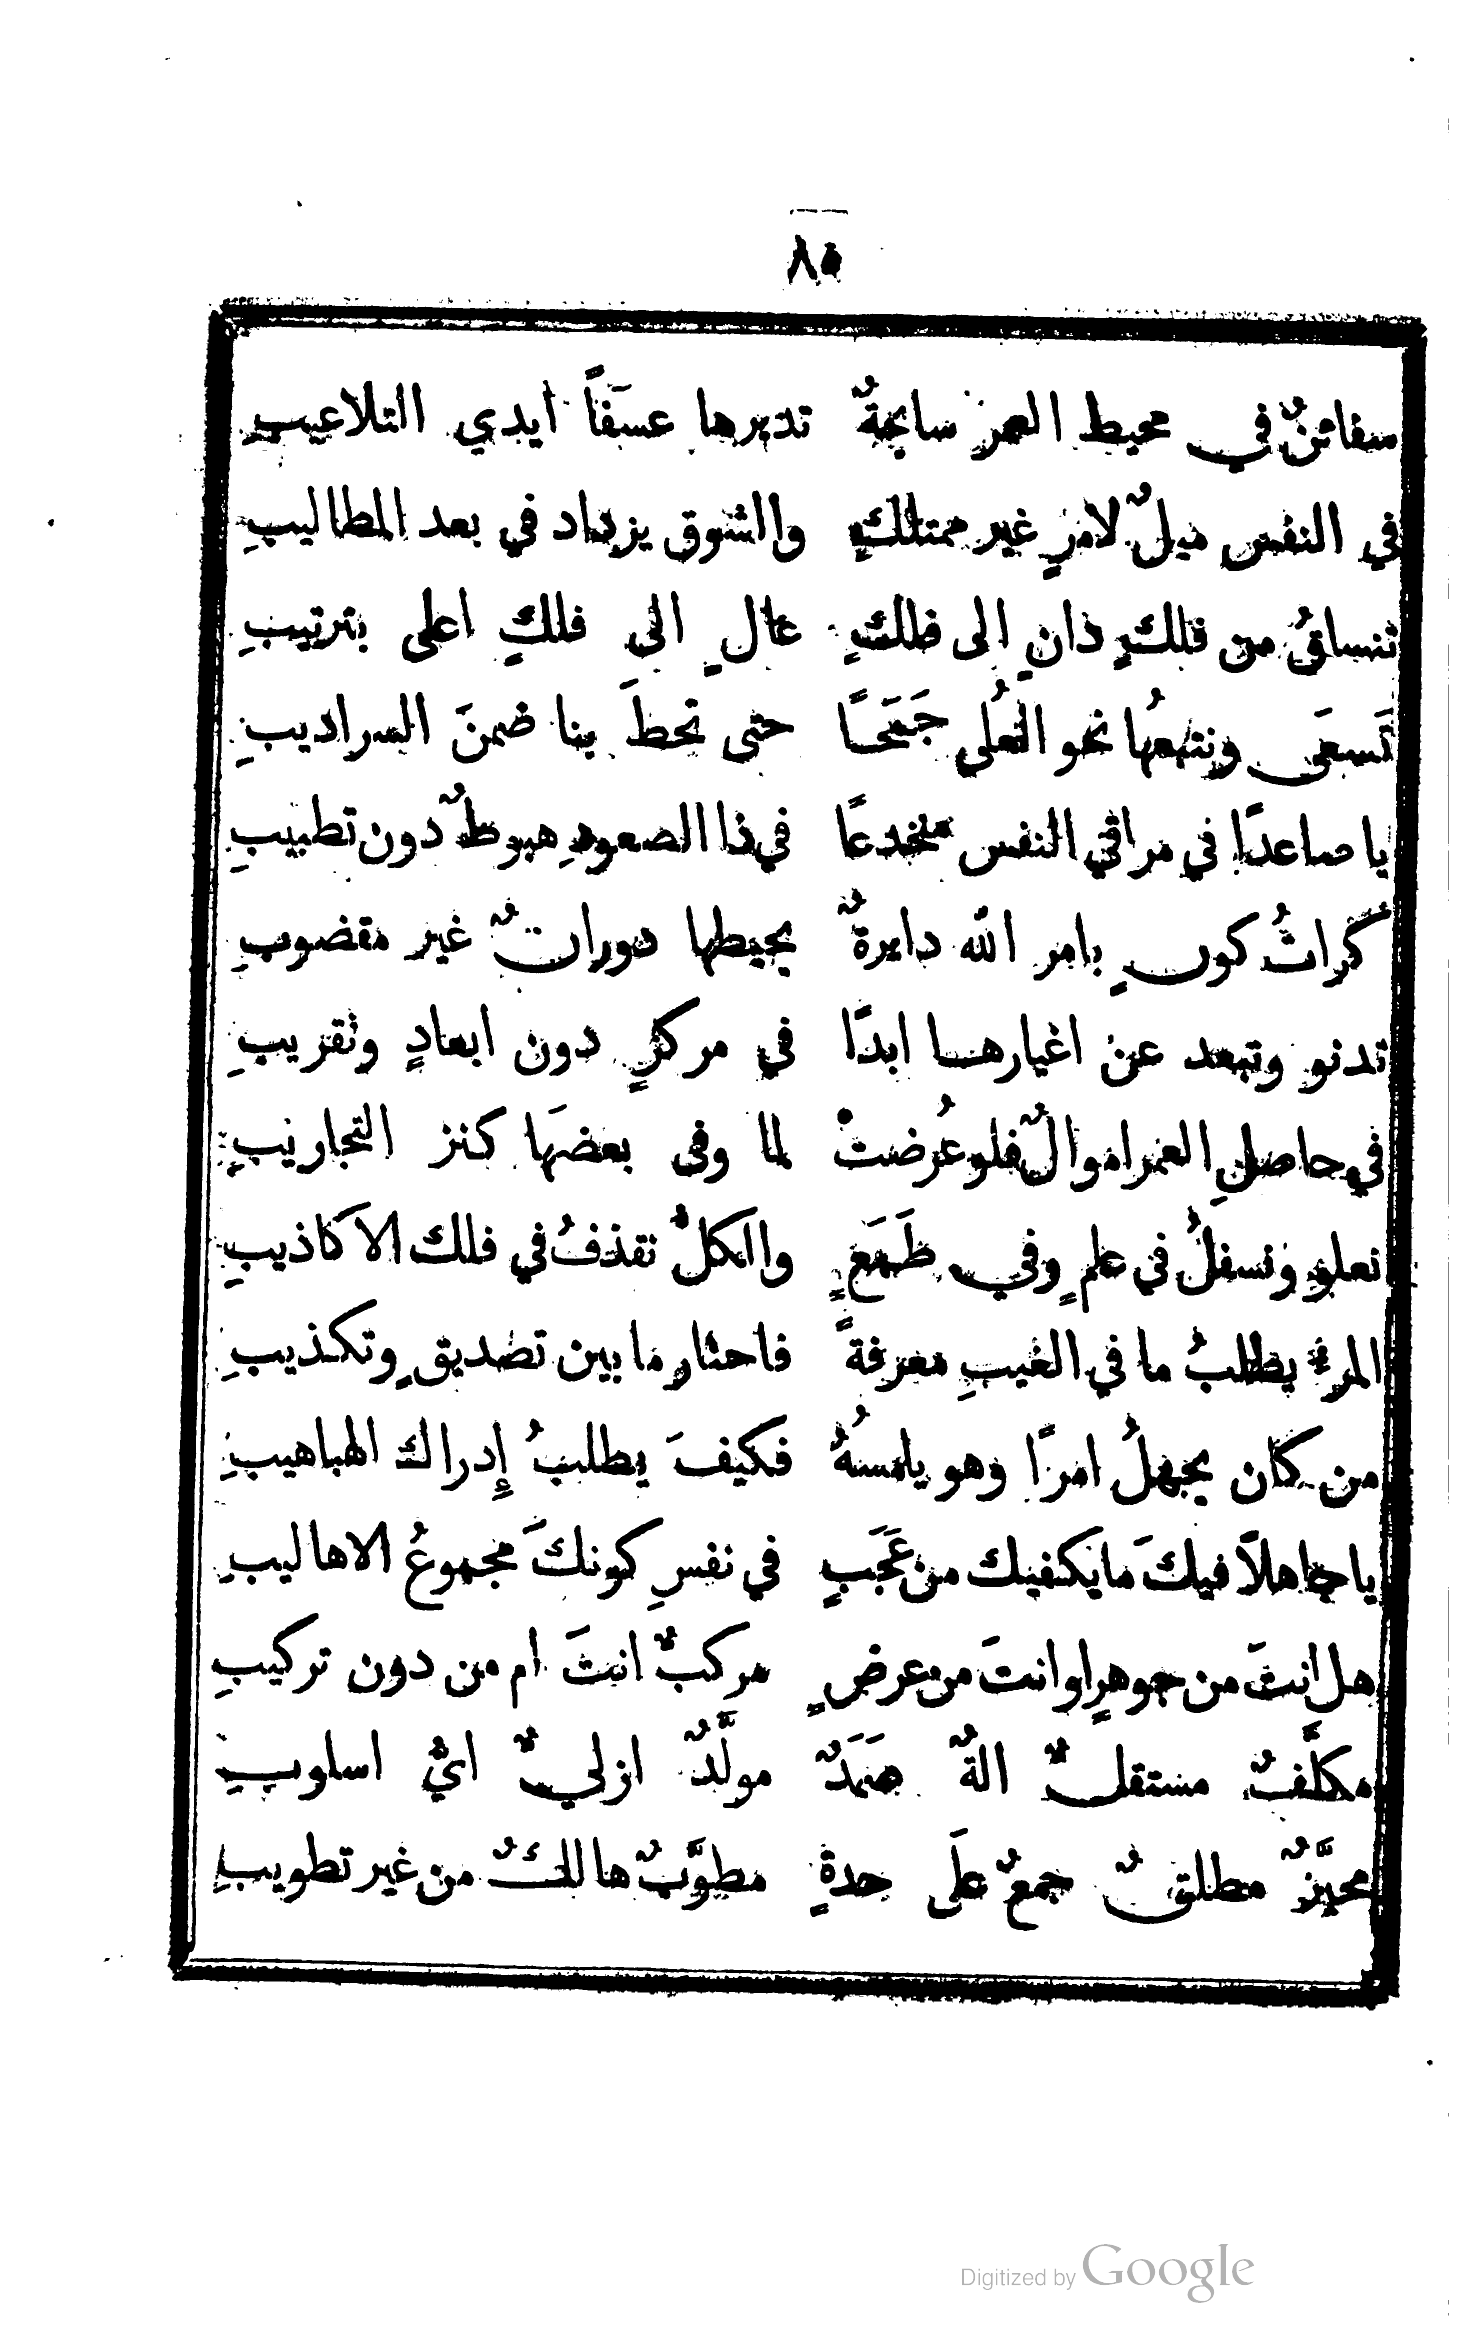 ٨٥
سفائنٌ في محيط العمر سابحةٌ تديرها عسفاً ايدي التلاعيبِ
في النفس ميلٌ لامرٍ غير ممتلكٍ والشوق يزداد في بعد المطاليبِ
تنساقُ من فلكٍ دانٍ الى فلكٍ عالٍ الى فلكٍ اعلى بترتيبِ
تَسعَى ونتبعُها نحو العُلى جَمَحًا حتى تحطَ بنا ضمنَ السراديبِ
يا صاعدًا في مراقي النفس منخدعًا في ذا الصعودِ هبوطٌ دون تطبيبِ
كُراتُ كونٍ بامر الله دايرةٌ يحيطها دورانٌ غير مقضوبِ
تدنو وتبعد عن اغيارها ابدًا في مركزٍ دون ابعادٍ وتقريبِ
في حاصلِ العمر اموالٌ فلو عُرضتْ لما وفى بعضهَا كنز التجاريبِ
نعلو ونسفلُ في علمٍ وفي طَمَعٍ والكلُّ نقذفُ في فلك الاكاذيبِ
المرءُ يطلبُ ما في الغيبِ معرفةً فاحتار ما بين تصديقٍ وتكذيبِ
من كان يجهلُ امرًا وهو يلمسهُ فكيفَ يطلبُ إدراك الهباهيبِ
يا جاهلاً فيكَ ما يكفيك من عَجَبٍ في نفسِ كونكَ مجموعُ الاهاليبِ
هل انتَ من جوهرٍ او انتَ من عرضٍ مركبٌ انتَ ام من دون تركيبِ
مكلَّفٌ مستقلٌ الةٌ صَمَدٌ مولَّدٌ ازليٌ ايُّ اسلوبِ
محيَّزٌ مطلقٌ جمعٌ علَى حدةٍ مطوَّبٌ هالكٌ من غير تطويبِ
Digitized by Google